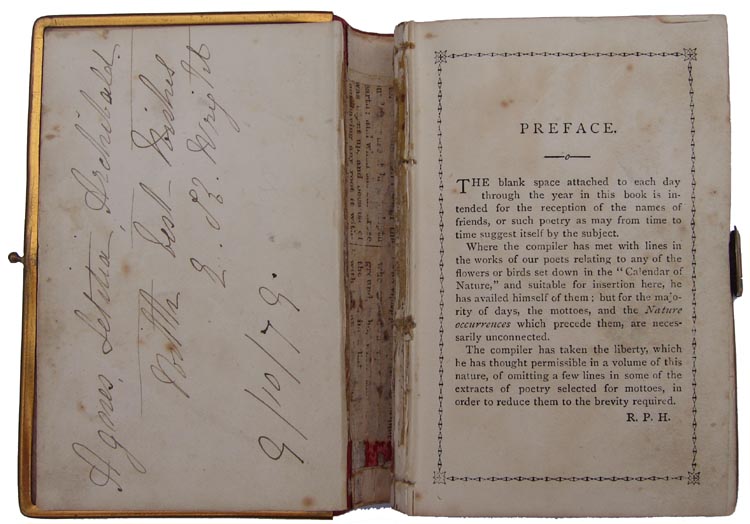 Agnes Letitia Archibald.
With best wishes
J. B. Wright
9/10/79.
PREFACE.
THE blank space attached to each day
through the year in this book is in-
tended for the reception of the names of
friends, or such poetry as may from time to
time suggest itself by the subject.
Where the compiler has met with lines in
the works of our poets relating to any of the
flowers or birds set down in the “Calendar of
Nature,” and suitable for insertion here, he
has availed himself of them; but for the majo-
rity of days, the mottoes, and the Nature
occurrences which precede them, are neces-
sarily unconnected.
The compiler has taken the liberty, which
he has thought permissible in a volume of this
nature, of omitting a few lines in some of the
extracts of poetry selected for mottoes, in
order to reduce them to the brevity required.
R. P. H.